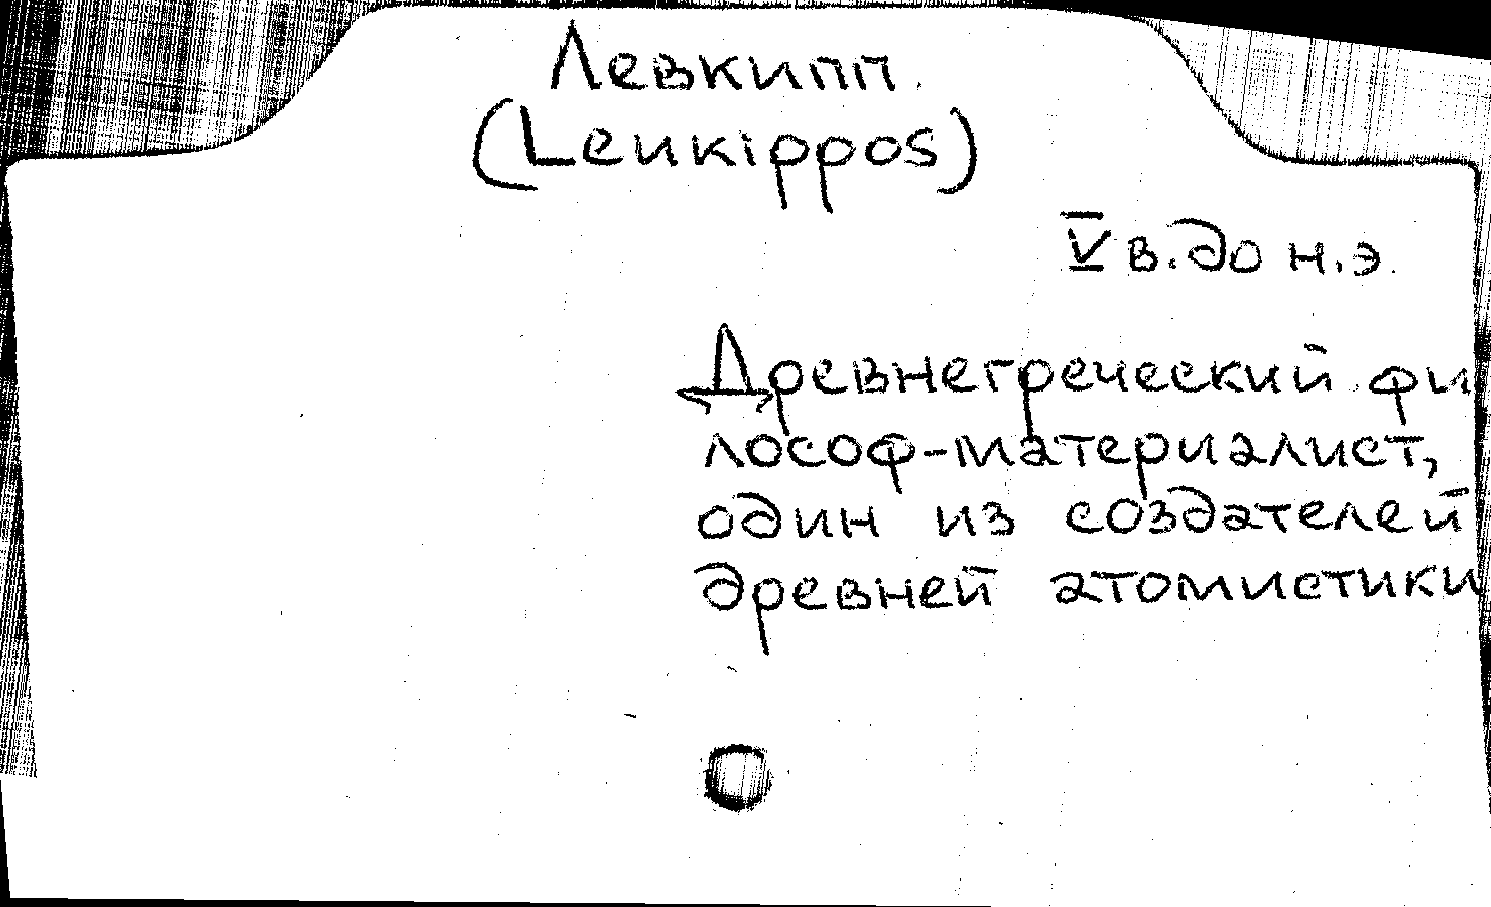 Левкипп.
(Leukippos)
V в. до н.э.
Древнегреческий фи
лософ-материалист,
один из создателей
древней атомистики